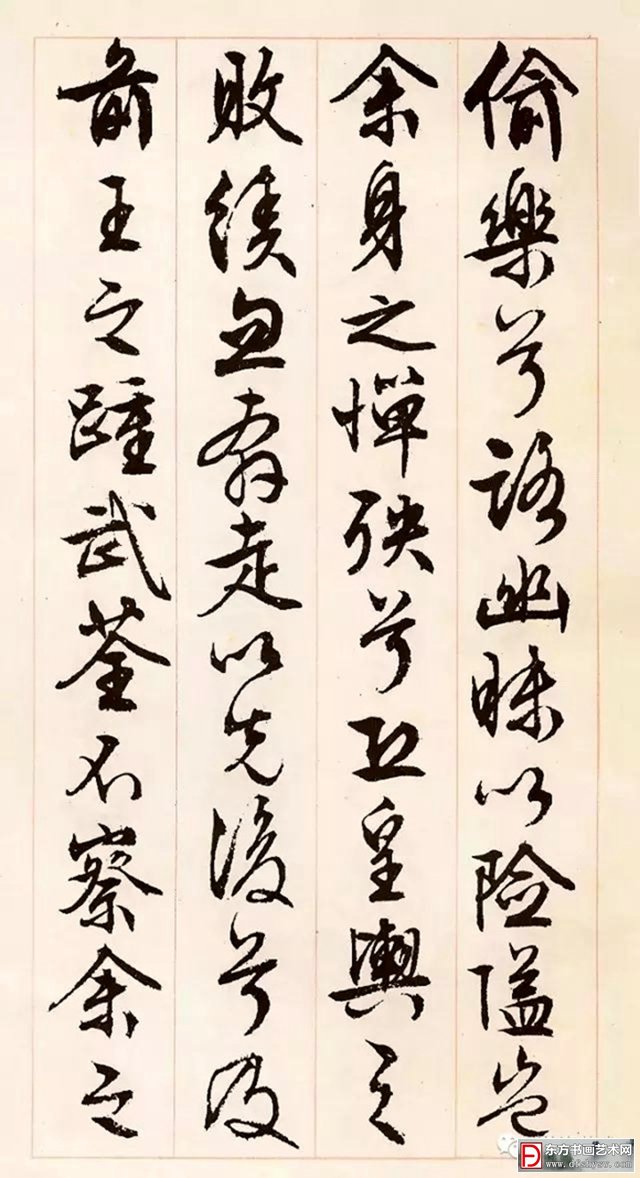 偷樂兮路幽昧以險隘豈
余身之憚殃兮恐皇輿之
敗績忽奔走以先後兮及
前王之踵武荃不察余之
东方书画艺术网
www.dfshysw.com